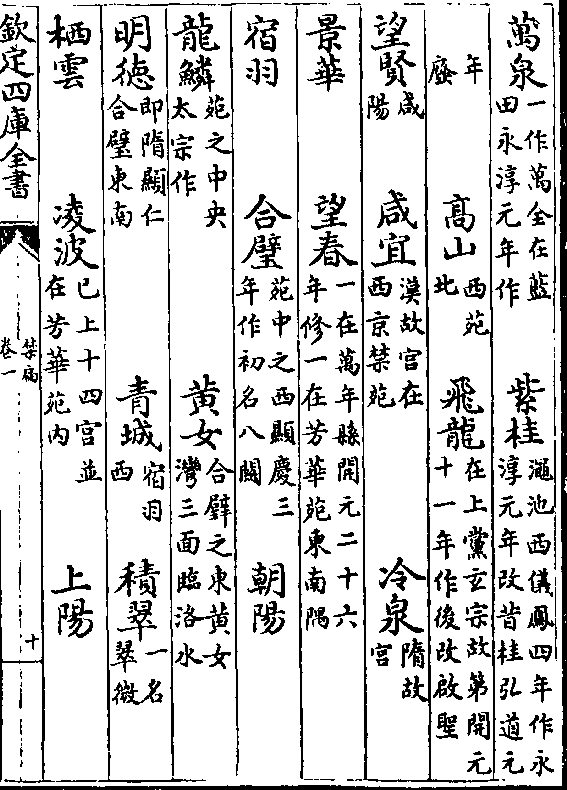 萬泉 一作萬全在藍田永淳元年作 紫桂 澠池西儀鳳四年作永淳元年改昔桂弘道元
年廢 髙山 西苑北 飛龍 在上黨玄宗故第開元十一年作後改啟聖
望賢 咸陽 咸宜 漢故宮在西京禁苑 冷泉 隋故宮
景華 望春 一在萬年縣開元二十六年修一在芳華苑東南隅
宿羽 合璧 苑中之西顯慶三年作初名八關 朝陽
龍鱗 苑之中央太宗作 黄女 合璧之東黄女灣三面臨洛水
明德 即隋顯仁合璧東南 青城 宿羽西 積翠 一名翠微
栖雲 凌波 已上十四宮並在芳華苑内 上陽
欽定四庫全書
禁扁
卷一
十